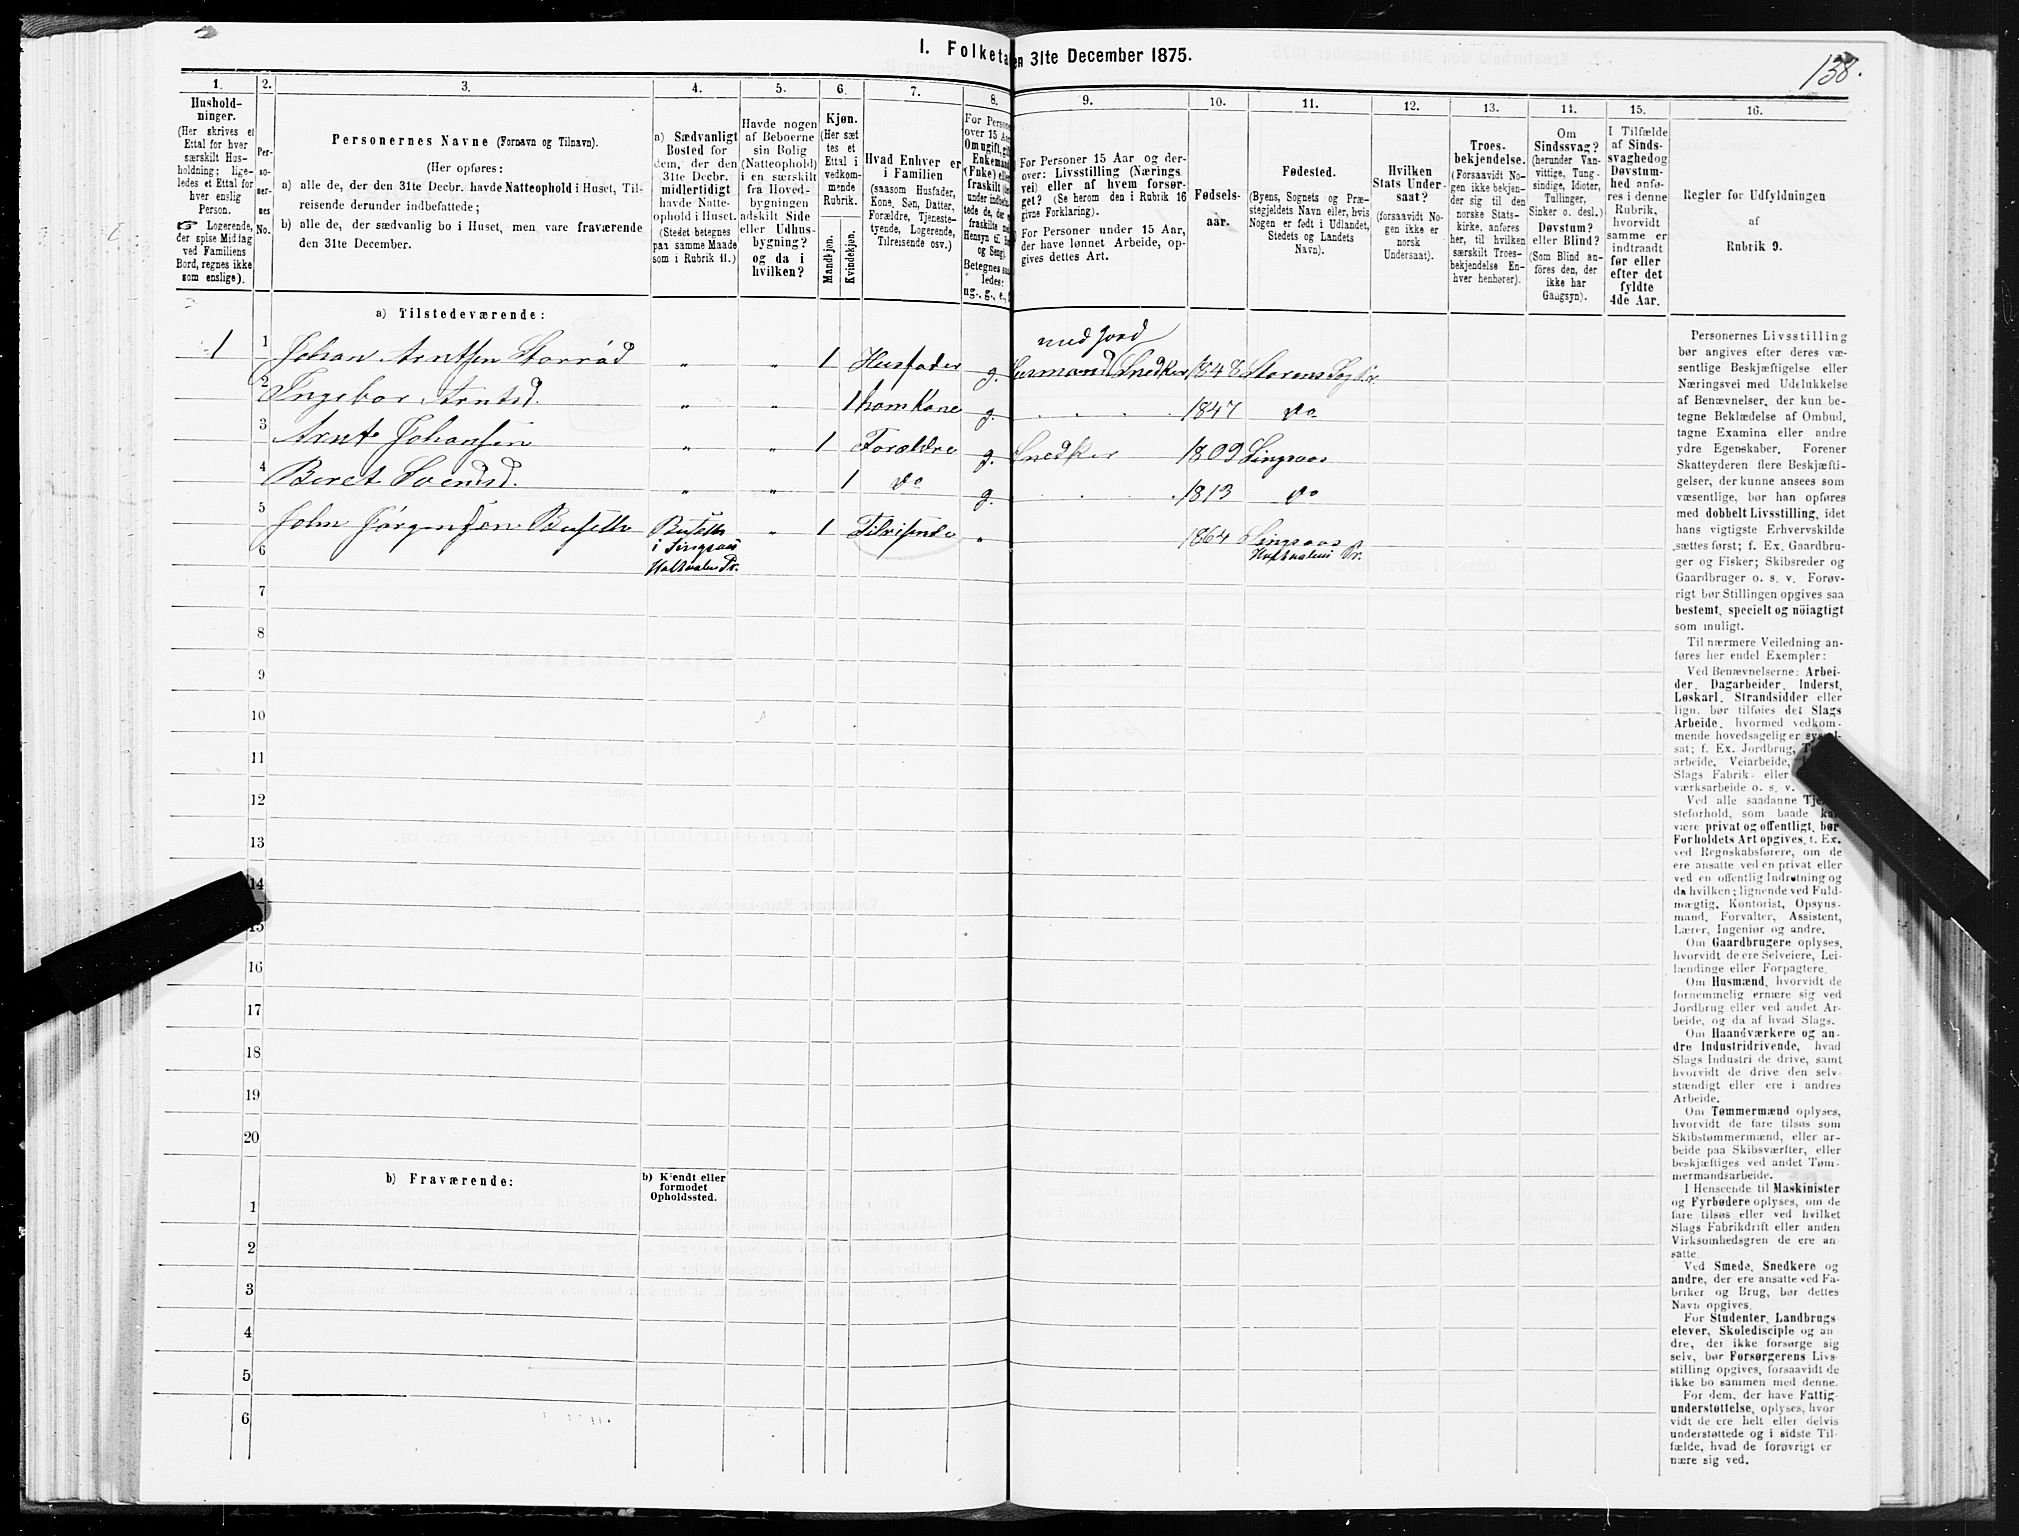 138.
I. Folketa
en 31te December 1875.
1.
Husholdninger.
(Her skrives et
Ettal for hver
særskilt Husholdning; ligeledes et Ettal for
hver enslig
Person.
Logerende,
der spise Middag
ved Familiens
Bord, regnes ikke
som enslige).
2.
Personernes
No.
3.
Personernes Navne (Fornavn og Tilnavn).
(Her opføres:
a) alle de, der den 31te Decbr. havde Natteophold i Huset, Tilreisende derunder indbefattede;
b) alle de, der sædvanlig bo i Huset, men vare fraværende
den 31te December.
4.
a) Sædvanligt
Bosted for
dem, der den
31te Decbr.
midlertidigt
havde Natteophold i Huset.
(Stedet betegnes
paa samme Maade
som i Rubrik 11.)
5.
Havde nogen
af Beboerne
sin Bolig
(Natteophold)
i en særskilt
fra Hovedbygningen
adskilt Side
eller Udhusbygning?
og da i
hvilken?
6.
Kjøn.
(Her sættes et
Ettal i
vedkommende
Rubrik.
Mandkjøn.
Kvindekjøn.
7.
Hvad Enhver er
i Familien
(saasom Husfader,
Kone, Søn, Datter,
Forældre, Tjenestetyende, Logerende,
Tilreisende osv.)
8.
For Person
over 15 Aa
Om ugift, gif
Enkemand
(Enke) elle
fraskilt
og Seng).
Betegnes saa
ledes:
ug., g., e., f
9.
For Personer 15 Aar og derover: Livsstilling (Næringsvei) eller af hvem forsørget? (Se herom den i Rubrik 16
givne Forklaring).
For Personer under 15 Aar,
der have lønnet Arbeide, opgives dettes Art.
10.
Fødselsaar.
11.
Fødested.
(Byens, Sognets og Præstegjeldets Navn eller, hvis
Nogen er født i Udlandet,
Stedets og Landets
Navn).
12.
Hvilken
Stats Undersaat?
(forsaavidt Nogen ikke er
norsk
Undersaat).
13.
Troesbekjendelse.
(Forsaavidt Nogen ikke bekjender sig til den
norske Statskirke, anføres
her, til hvilken
særskilt Troesbekjendelse Enhver henhører).
14.
Om
Sindssvag?
(herunder Vanvittige, Tungsindige, Idioter,
Tullinger,
Sinker o. desl.)
Døvstum?
eller Blind?
(Som Blind anføres den, der
ikke har
Gangsyn).
15.
I Tilfælde
af Sindssvaghed og
Døvstumhed anføres i denne
Rubrik,
hvorvidt
samme er
indtraadt
før eller
efter det
fyldte
4de Aar.
16.
Regler for Udfyldningen
af
Rubrik 9.
a) Tilstedeværende:
med Jord
1 1 Johan Arntsen Storrød „ „ 1 Husfader g. Husmand Snedker 1848 Størens Sog Pr.
2 Ingebor Arntsd. „ „ 1 hans Kone g. 1847 do
3 Arnt Johansen „ „ 1 Forældre g. Snedker 1809 Singsaas
4 Beret Svendsd. „ „ 1 do g. 1813 do
5 John Jørgensen Busetle Busetle „ 1 Tilreisende „ 1864 Singsaas
6 i Singsaas Holtaalens Pr.
Holtaalen Pr.
7
8
9
10
11
12
13
14
15
16
17
18
19
20
b) Fraværende:
b) Kjendt eller
formodet
Opholdssted.
1
2
3
4
5
6
Personernes Livsstilling
bør angives efter deres væsentlige Beskjæftigelse eller
Næringsvei med Udelukkelse
af Benævnelser, der kun betegne Beklædelse af Ombud,
tagne Examina eller andre
ydre Egenskaber. Forener
Skatteyderen flere Beskjæftigelser, der kunne ansees som
væsentlige, bør han opføres
med dobbelt Livsstilling, idet
hans vigtigste Erhvervskilde
sættes først; f. Ex. Gaardbruger og Fisker; Skibsreder og
Gaardbruger o. s. v. Forøvrigt bør Stillingen opgives saa
bestemt, specielt og nöiagtigt
som muligt.
Til nærmere Veiledning anføres her endel Exempler:
Ved Benævnelserne: Arbeider, Dagarbeider, Inderst,
Løskarl, Strandsidder eller
lign. bør tilføies det Slags
Arbeide, hvormed vedkommende hovedsagelig er syssel-
sat; f. Ex. Jordbrug,
arbeide, Veiarbeide,
Slags Fabrik- eller
værksarbeide o. s. v.
Ved alle saadanne
steforhold, som baade
være privat og offentligt, bør
Forholdets Art opgives, f. Ex.
ved Regnskabsførere, om de
ere ansatte ved en privat eller
ved en offentlig Indretning og
da hvilken; lignende ved Fuldmægtig, Kontorist, Opsynsmand, Forvalter, Assistent,
Lærer, Ingeniør og andre.
Om Gaardbrugere oplyses,
hvorvidt de ere Selveiere, Leilændinge eller Forpagtere.
Om Husmænd, hvorvidt de
fornemmelig ernære sig ved
Jordbrug eller ved andet Arbeide, og da af hvad Slags.
Om Haandværkere og andre Industridrivende, hvad
Slags Industri de drive, samt
hvorvidt de drive den selvstændigt eller ere i andres
Arbeide.
Om Tømmermænd oplyses,
hvorvidt de fare tilsøs som
Skibstømmermænd, eller arbeide paa Skibsværfter, eller
beskjæftiges ved andet Tømmermandsarbeide.
I Henseende til Maskinister
og Fyrbødere oplyses, om de
fare tilsøs eller ved hvilket
Slags Fabrikdrift eller anden
Virksomhedsgren de ere ansatte.
Ved Smede, Snedkere og
andre, der ere ansatte ved Fabriker og Brug, bør dettes
Navn opgives.
For Studenter, Landbrugselever, Skoledisciple og andre, der ikke forsørge sig
selv, bør Forsørgerens Livsstilling opgives, forsaavidt de
ikke bo sammen med denne.
For dem, der have Fattigunderstøttelse, oplyses, hvorvidt de ere helt eller delvis
understøttede og i sidste Tilfælde, hvad de forøvrigt ernære sig ved.